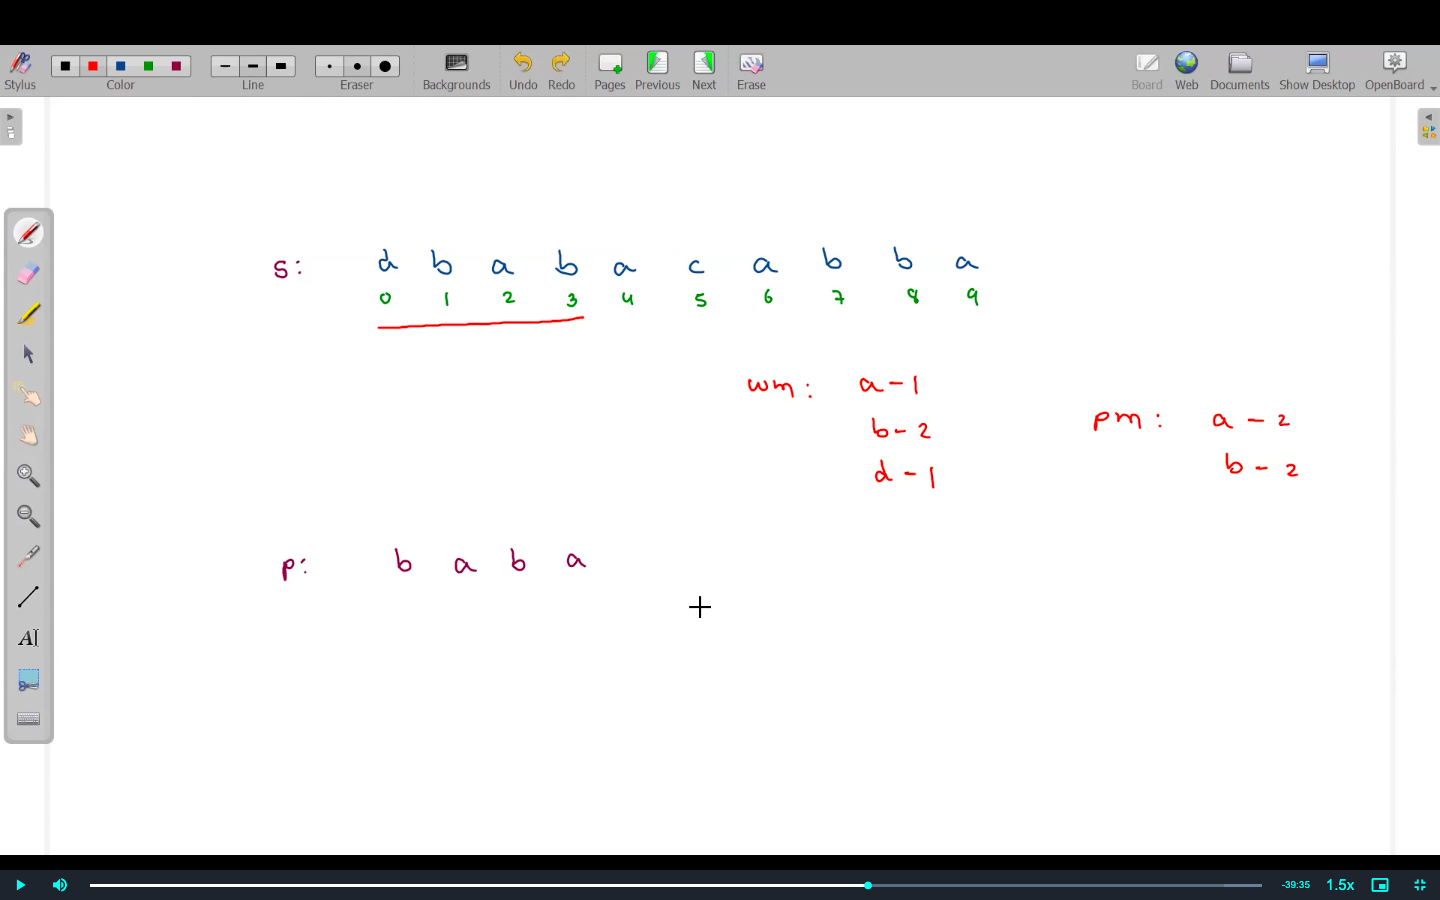 Stylus Color Line Eraser Backgrounds Undo Redo Pages Previous Next Erase Board Web Documents Show Desktop OpenBoard
s: d b a b a c a b b a
0 1 2 3 4 5 6 7 8 9
wm: a - 1
b - 2
d - 1
pm: a - 2
b - 2
p: b a b a
AI
-39:35 1.5x